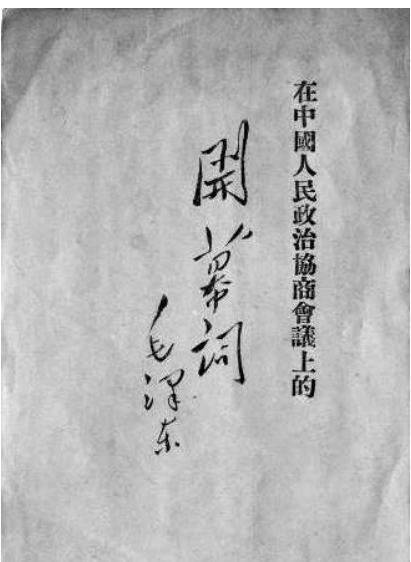 在中國人民政治協商會議上的
開幕詞
毛澤东